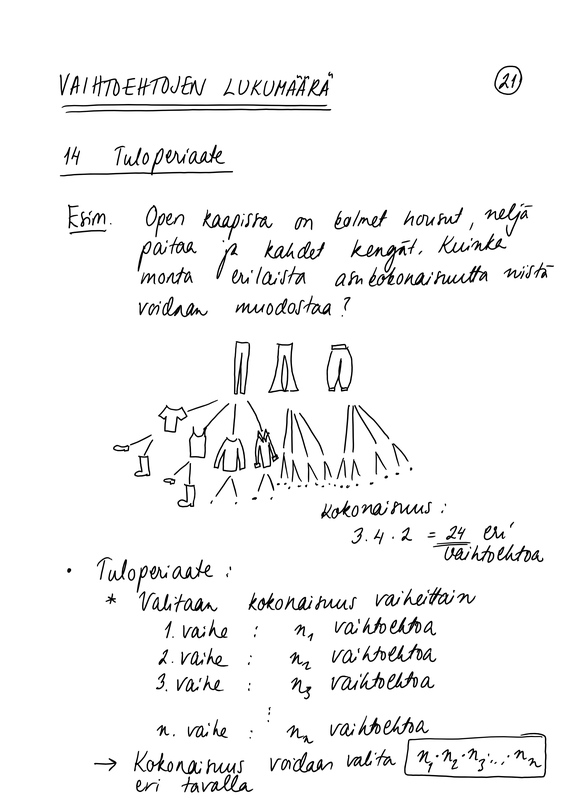 VAIHTOEHTOJEN LUKUMÄÄRÄ
21
14 Tuloperiaate
Esim. Open kaapissa on kolmet housut, neljä
paitaa ja kahdet kengät. Kuinka
monta erilaista asukokonaisuutta niistä
voidaan muodostaa?
Kokonaisuus:
3·4·2 = 24 eri
vaihtoehtoa
• Tuloperiaate:
* Valitaan kokonaisuus vaiheittain
1. vaihe : n₁ vaihtoehtoa
2. vaihe : n₂ vaihtoehtoa
3. vaihe : n₃ vaihtoehtoa
⋮
n. vaihe : nₙ vaihtoehtoa
→ Kokonaisuus voidaan valita n₁·n₂·n₃·...·nₙ
eri tavalla